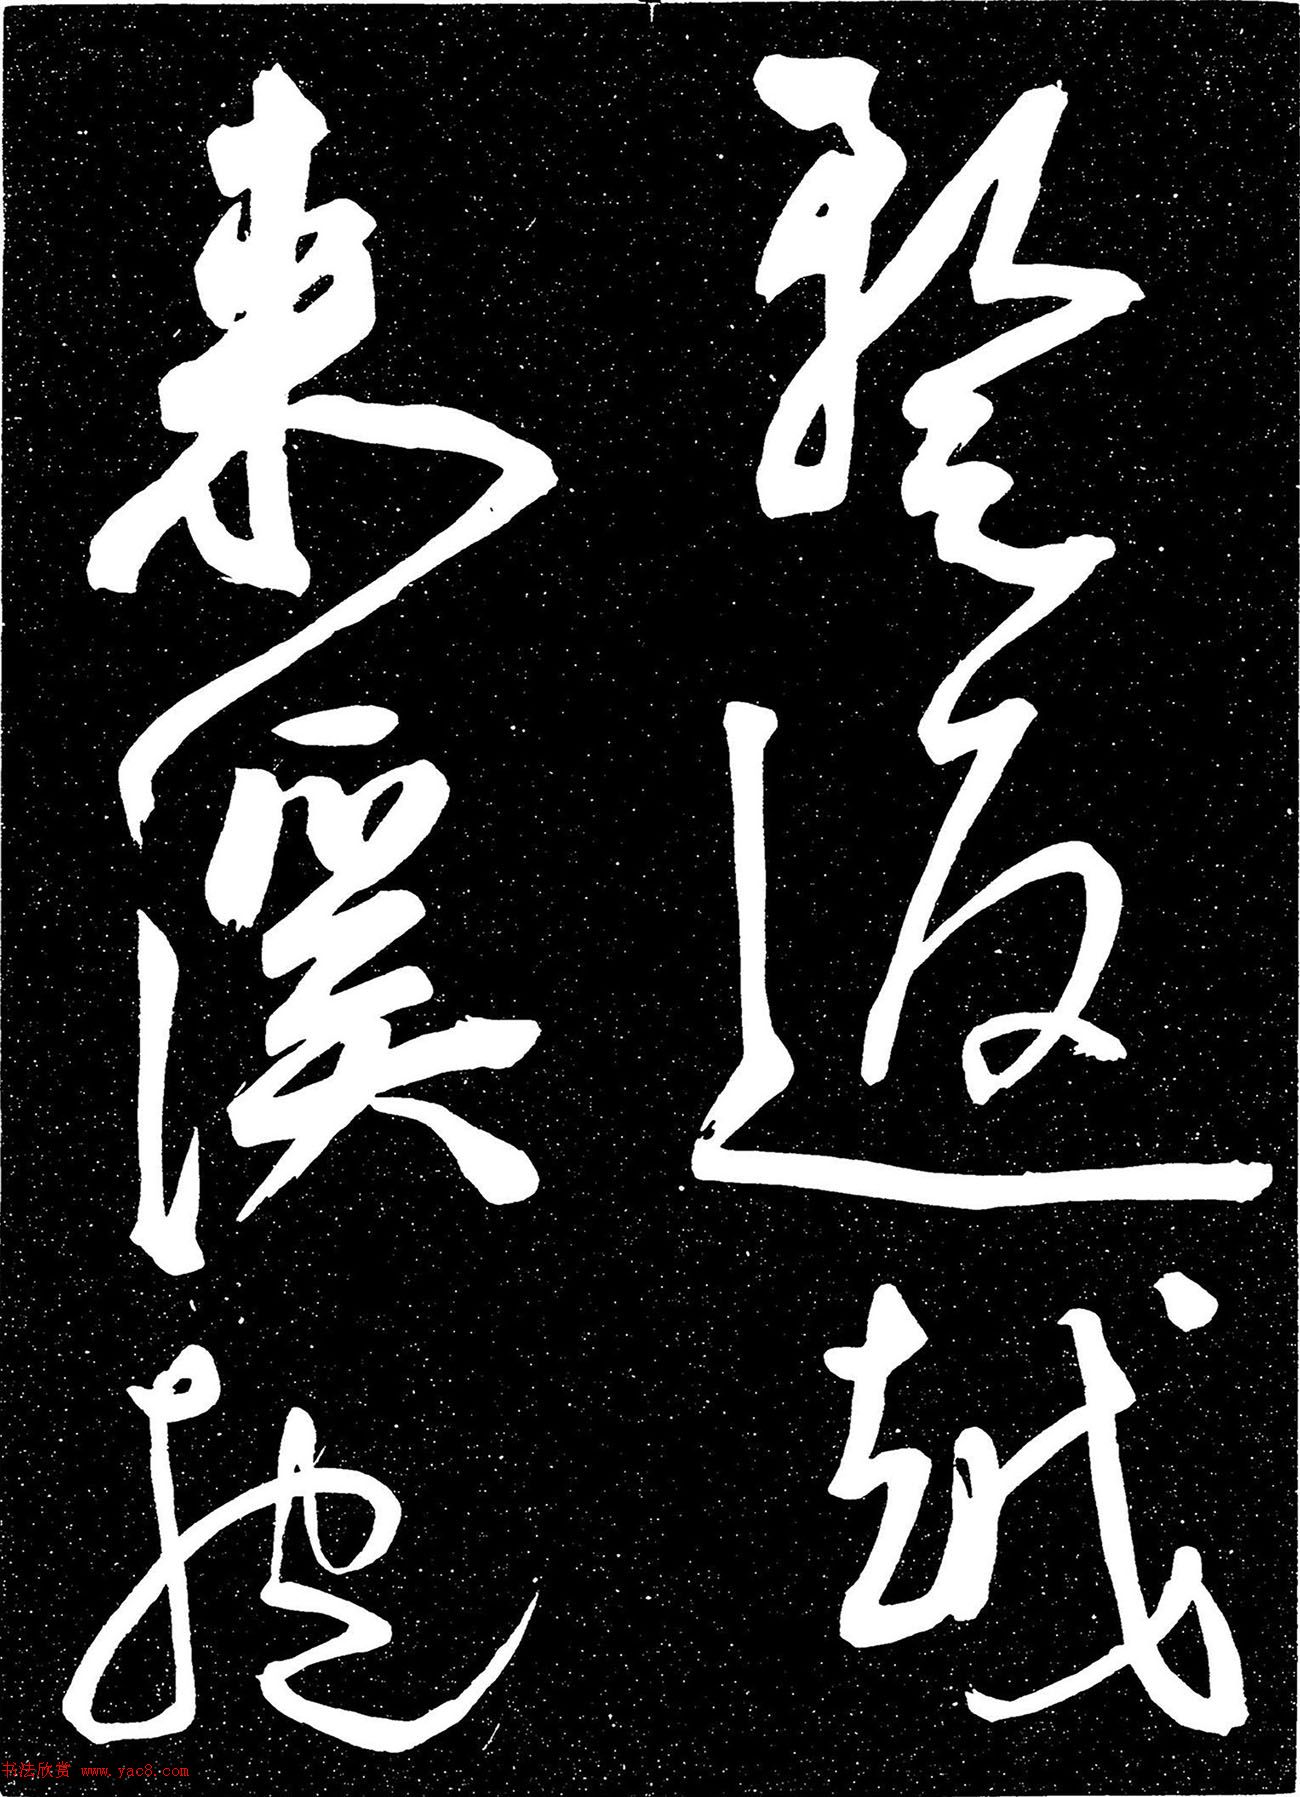 發返越
來溪抱
书法欣赏 www.yac8.com